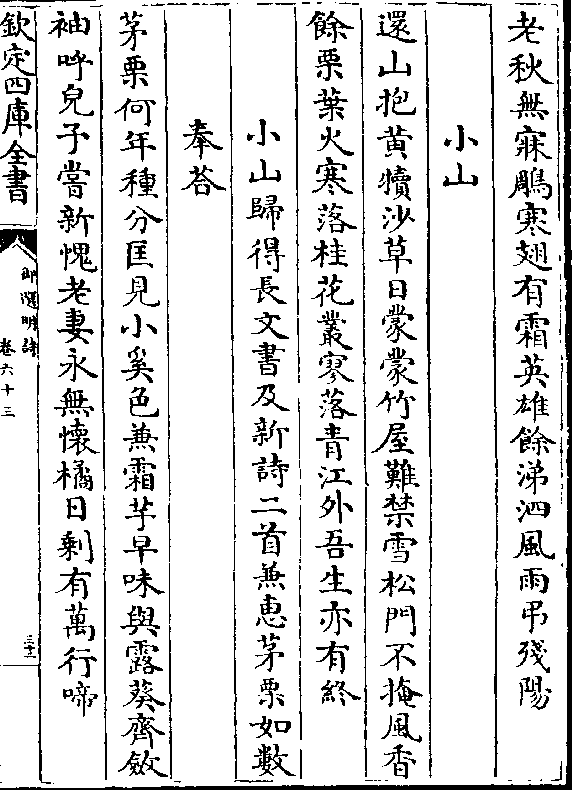 老秋無寐鵰寒翅有霜英雄餘涕泗風雨弔殘陽
小山
還山抱黄犢沙草日蒙蒙竹屋難禁雪松門不掩風香
餘栗葉火寒落桂花叢寥落青江外吾生亦有終
小山歸得長文書及新詩二首兼恵茅栗如數
奉荅
茅栗何年種分匡見小奚色兼霜芋早味與露葵齊斂
袖呼兒子嘗新愧老妻永無懷橘日剩有萬行啼
欽定四庫全書
御選明詩
卷六十三
三十二